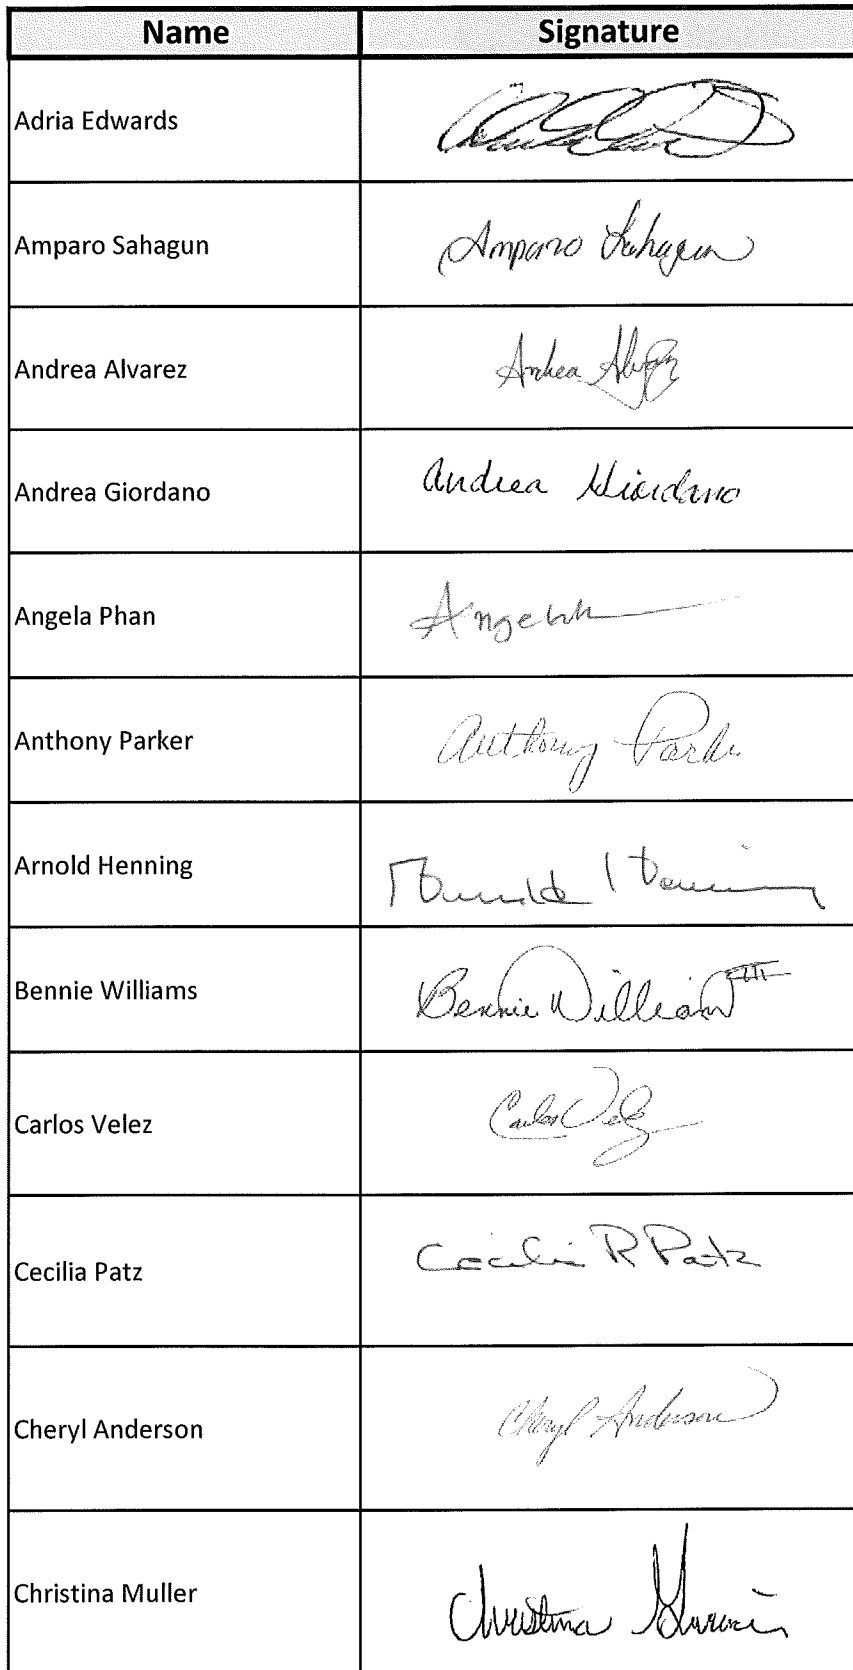 Name Signature
Adria Edwards
Amparo Sahagun Amparo Sahagun
Andrea Alvarez Andrea
Andrea Giordano Andrea Giordano
Angela Phan Angela
Anthony Parker Anthony Parker
Arnold Henning
Bennie Williams Bennie William III
Carlos Velez Carlos Velez
Cecilia Patz Cecilia R Patz
Cheryl Anderson Cheryl Anderson
Christina Muller Christina